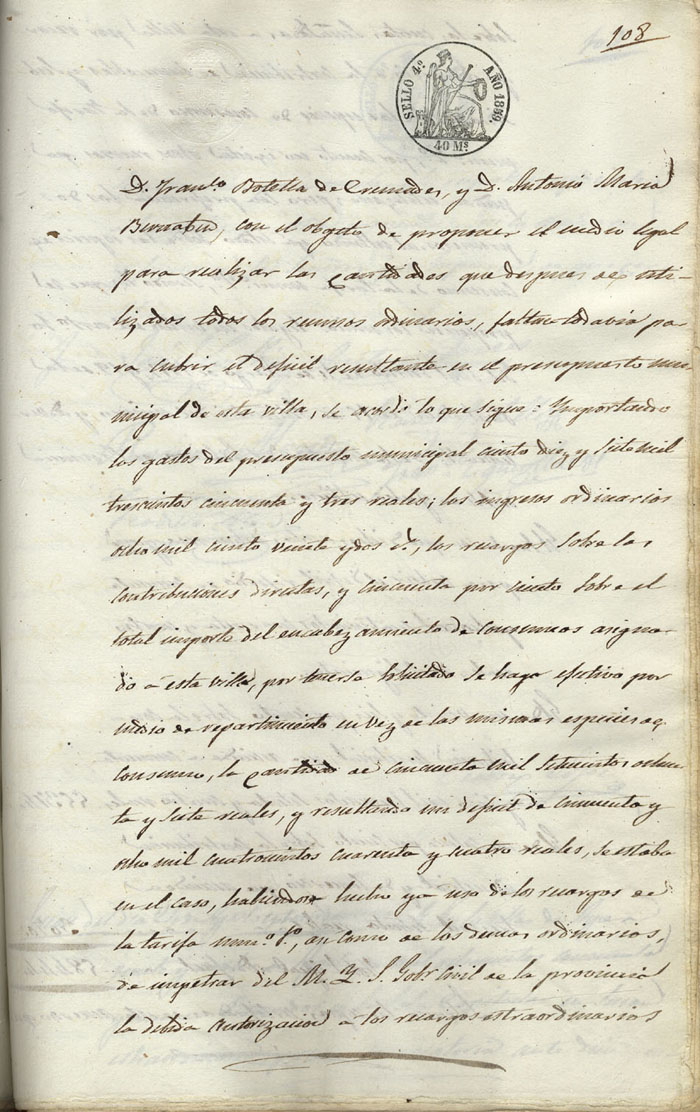 108
SELLO 4º AÑO 1859.
40 Ms.
D. Franco Botella de Cremades, y D. Antonio Maria
Bernabeu, con el objeto de proponer el medio legal
para realizar las cantidades que despues de uti-
lizados todos los recursos ordinarios, faltan todavia pa-
ra cubrir el deficit resultante en el presupuesto mu-
nicipal de esta villa, se acordó lo que sigue: Importando
los gastos del presupuesto municipal ciento diez y siete mil
trescientos cincuenta y tres reales; los ingresos ordinarios
ocho mil ciento veinte y dos , los recargos sobre las
contribuciones directas, y cincuenta por ciento sobre el
total importe del encabezamiento de consumos asigna-
do a esta villa, por tenerse solicitado se haga efectivo por
medio de repartimiento en vez de las mismas especies de
consumo, la cantidad de cincuenta mil setecientos ochen-
ta y siete reales, y resultando un deficit de cincuenta y
ocho mil cuatrocientos cuarenta y cuatro reales, se estaba
en el caso, habiendose hecho ya uso de los recargos de
la tarifa numo. 1o, asi como de los demas ordinarios,
de impetrar del M. Y. S. Gobr. Civil de la provincia
la debida autorizacion a los recargos estraordinarios